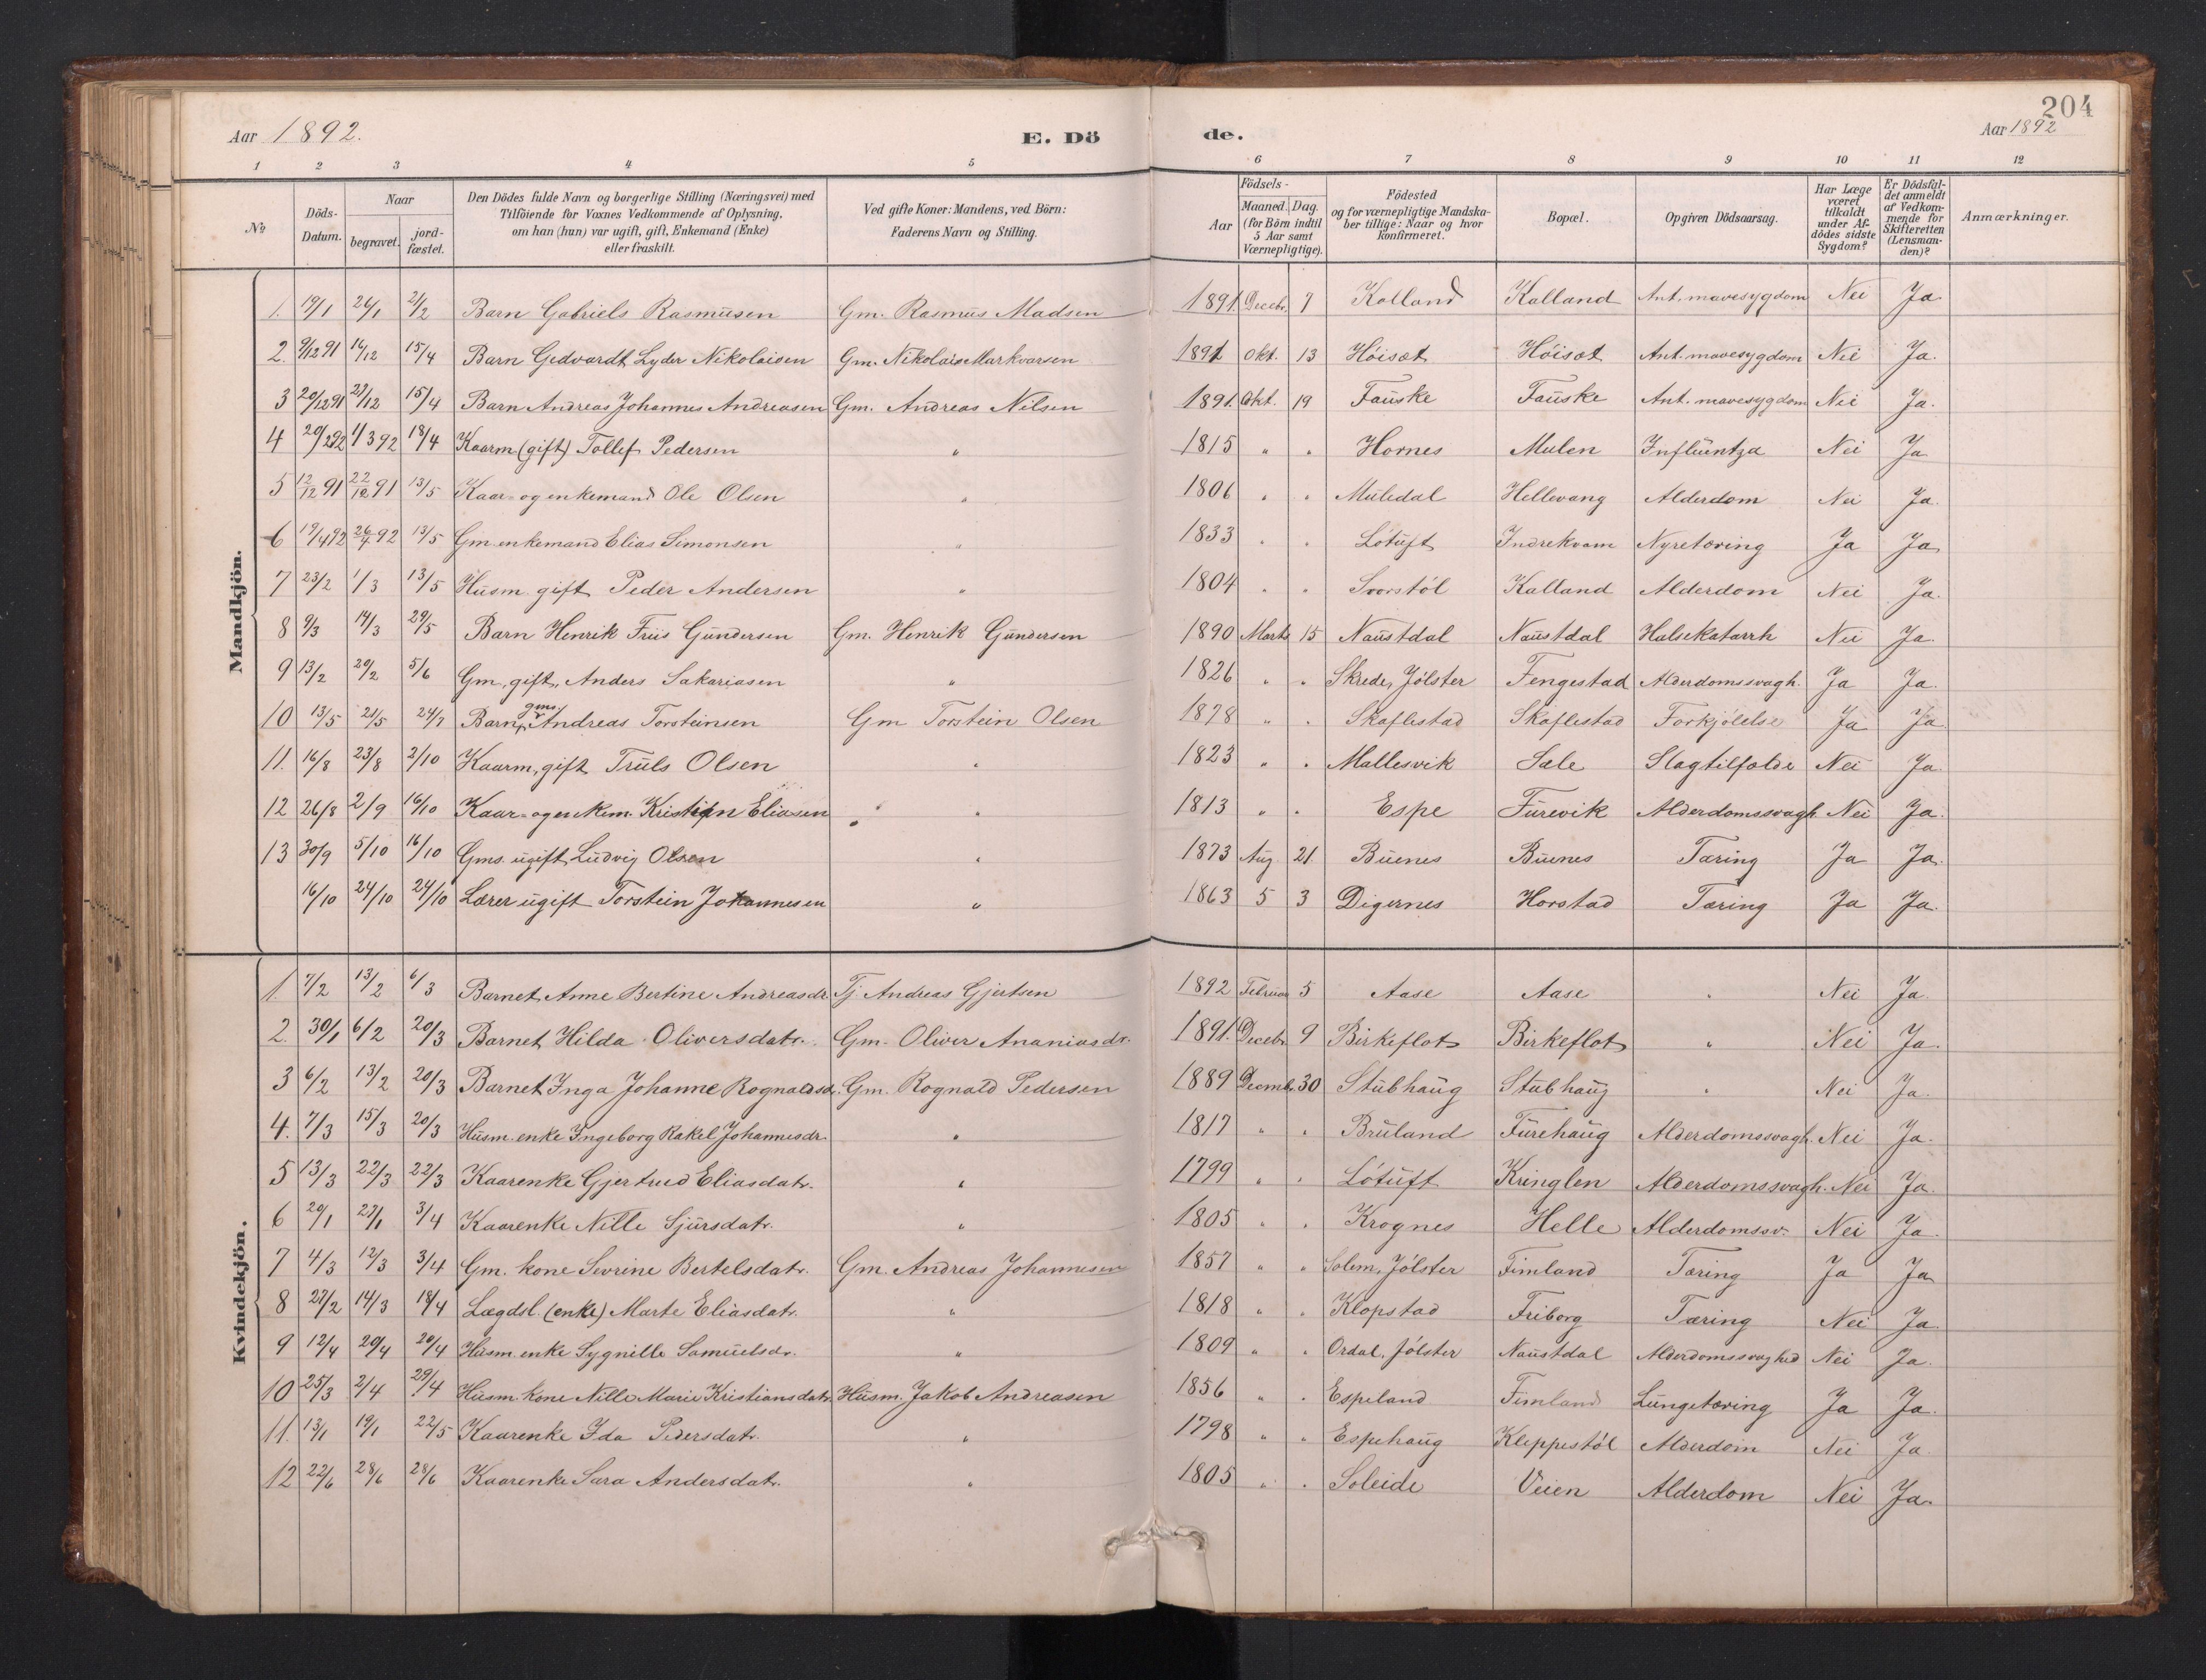 204
Aar 1892.
E. Dö de.
Aar 1892
1 2 3 4 5 6 7 8 9 10 11 12
№
Döds-Datum.
Naar
begravet.
jord-fæstet.
Den Dödes fulde Navn og borgerlige Stilling (Næringsvei) med
Tilföiende for Voxnes Vedkommende af Oplysning,
om han (hun) var ugift, gift, Enkemand (Enke)
eller fraskilt.
Ved gifte Koner: Mandens, ved Börn:
Faderens Navn og Stilling.
Födsels-
Aar
Maaned. Dag.
(for Börn indtil
5 Aar samt
Værnepligtige).
Födested
og for værnepligtige Mandska-
ber tillige: Naar og hvor
konfirmeret.
Bopæl.
Opgiven Dödsaarsag.
Har Læge
været
tilkaldt
under Af-
dödes sidste
Sygdom?
Er Dödsfal-
det anmeldt
af Vedkom-
mende for
Skifteretten
(Lensman-
den)?
Anmærkninger.
Mandkjön.
1. 19/1 26/1 21/2 Barn Gabriels Rasmusen Gm. Rasmus Madsen 1891. Decebr. 7 Kalland Kalland Ant. mavesygdom Nei Ja
2. 9/12 91 16/12 15/4 Barn Gedvardt Lyder Nikolaisen Gm. Nikolai Markvarsen 1891 Okt. 13 Høisæt Høisæt Ant. mavesygdom Nei Ja.
3 20/12 91 27/12 15/4 Barn Andreas Johannes Andreasen Gm. Andreas Nilsen 1891. Okt. 19 Fauske Fauske Ant. mavesygdom Nei Ja.
4 20/2 92 1/3 92 18/4 Kaarm (gift) Tollef Pedersen " 1815 " " Hornes Mulen Influentza Nei Ja
5 12/12 91 22/12 91 13/5 Kaar- og enkemand Ole Olsen " 1806 " " Muledal Hellevang Alderdom Nei Ja.
6 19/4 92 26/4 92 13/5 Gm. enkemand Elias Simonsen " 1833 " " Løtuft Indrekvam Nyretæring Ja Ja
7 23/2 1/3 13/5 Husm. gift Peder Andersen " 1804 " " Svorstøl Kalland Alderdom Nei Ja.
8 9/3 14/3 29/5 Barn Henrik Friis Gundersen Gm. Henrik Gundersen 1890 Marts 15 Naustdal Naustdal Halsekatarrh Nei Ja.
9 13/2 20/2 5/6 Gm, gift, Anders Sakariasen " 1826 " " Skrede, Jølster Fengestad Alderdomssvagh. Ja Ja.
10 13/5 21/5 24/7 Barn, gms. Andreas Torsteinsen Gm Torstein Olsen 1878 " " Skaflestad Skaflestad Forkjølelse Ja Ja
11. 16/8 23/8 2/10 Kaarm, gift Truls Olsen " 1823 " " Mallesvik Sæle Slagtilfælde Nei Ja
12 26/8 2/9 16/10 Kaar- og enkem. Kristian Eliasen " 1813 " " Espe Furevik Alderdomssvagh. Nei Ja.
13 30/9 5/10 16/10 Gms. ugift Ludvig Olsen " 1873 Aug. 21. Buenes Buenes Tæring Ja Ja.
16/10 24/10 24/10 Lærer ugift Torstein Johannesen " 1863 5 3 Digernes Horstad Tæring Ja Ja.
Kvindekjön.
1. 7/2 13/2 6/3 Barnet Anne Bertine Andreasdr. Tj. Andreas Gjertsen 1892 Februar 5 Aase Aase " Nei Ja.
2. 30/1 6/2 20/3 Barnet Hilda Oliversdatr. Gm. Oliver Ananiasdr. 1891. Decebr. 9 Birkeflot Birkeflot " Nei Ja.
3 6/2 13/2 20/3 Barnet Inga Johanne Rognaldsd. Gm. Rognald Pedersen 1889 Decmb. 30 Stubhaug Stubhaug " Nei Ja.
4. 7/3 15/3 20/3 Husm. enke Ingeborg Rakel Johannesdr. " 1817 " " Bruland Furehaug Alderdomssvagh. Nei Ja.
5 13/3 22/3 22/3 Kaarenke Gjertrud Eliasdatr. " 1799 " " Løtuft Kringlen Alderdomssvagh. Nei Ja.
6 20/1 27/1 3/4 Kaarenke Nille Sjursdatr. " 1805 " " Krognes Helle Alderdomssv. Nei Ja
7 4/3 12/3 3/4 Gm. kone Sevrine Bertelsdatr. Gm. Andreas Johannesen 1857 " " Solem, Jølster Fimland Tæring Ja Ja
8 27/2 14/3 18/4 Lægdsl. (enke) Marte Eliasdatr. " 1818 " " Klopstad Friborg Tæring Nei Ja.
9 12/4 20/4 20/4 Husm. enke Sygnille Samuelsdr. " 1809 " " Ordal, Jølster Naustdal Alderdomssvaghed Nei Ja.
10 25/3 2/4 29/4 Husm. kone Nille Marie Kristiansdatr. Husm. Jakob Andreasen 1856 " " Espeland Fimland Lungetæring Ja Ja.
11. 13/1 19/1 22/5 Kaarenke Ida Pedersdatr. " 1798 " " Espehaug Kleppestøl Alderdom Nei Ja
12 22/6 28/6 28/6 Kaarenke Sara Andersdatr. " 1805 " " Soleide Veien Alderdom Nei Ja.